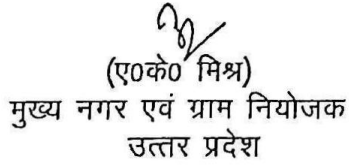 (ए०के० मिश्र)
मुख्य नगर एवं ग्राम नियोजक
उत्तर प्रदेश